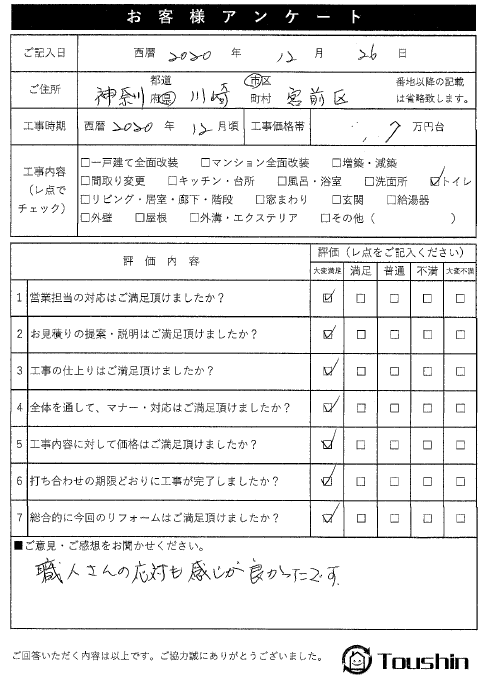 お客様アンケート
ご記入日 西暦 2020 年 12 月 26 日
ご住所 神奈川 都道府県 川崎 市区町村 宮前区 番地以降の記載は省略致します。
工事時期 西暦 2020 年 12 月頃 工事価格帯 7 万円台
工事内容（レ点でチェック）
□一戸建て全面改装 □マンション全面改装 □増築・減築
□間取り変更 □キッチン・台所 □風呂・浴室 □洗面所 ☑トイレ
□リビング・居室・廊下・階段 □窓まわり □玄関 □給湯器
□外壁 □屋根 □外溝・エクステリア □その他（ ）
評価内容 評価（レ点をご記入ください）
大変満足 満足 普通 不満 大変不満
1 営業担当の対応はご満足頂けましたか？ ☑ □ □ □ □
2 お見積りの提案・説明はご満足頂けましたか？ ☑ □ □ □ □
3 工事の仕上りはご満足頂けましたか？ ☑ □ □ □ □
4 全体を通して、マナー・対応はご満足頂けましたか？ ☑ □ □ □ □
5 工事内容に対して価格はご満足頂けましたか？ ☑ □ □ □ □
6 打ち合わせの期限どおりに工事が完了しましたか？ ☑ □ □ □ □
7 総合的に今回のリフォームはご満足頂けましたか？ ☑ □ □ □ □
■ご意見・ご感想をお聞かせください。
職人さんの応対も感じが良かったです。
ご回答いただく内容は以上です。ご協力誠にありがとうございました。
Toushin